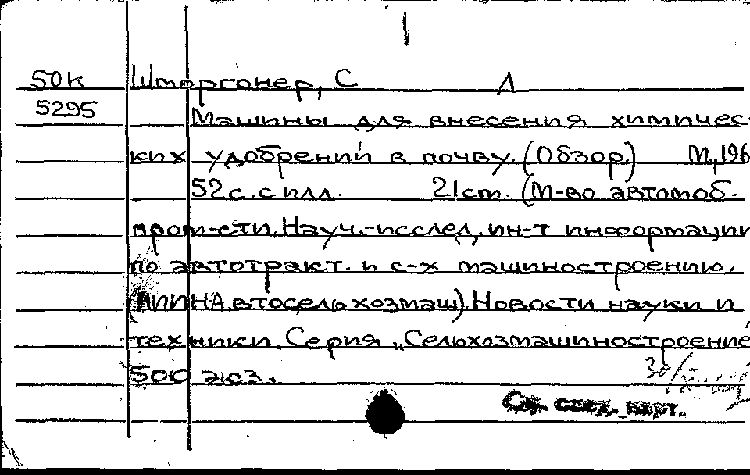 50К Шторгонер, С Л
5295 Машины для внесения химичес-
ких удобрений в почву. (Обзор.) М, 196
52 с. с илл. 21 см. (М-во автомоб.
пром-сти. Науч.-исслед, ин-т информации
по автотракт. и с-х машиностроению.
(НИИНАвтосельхозмаш). Новости науки и
техники. Серия „Сельхозмашиностроение
500 экз.
См. след. карт.